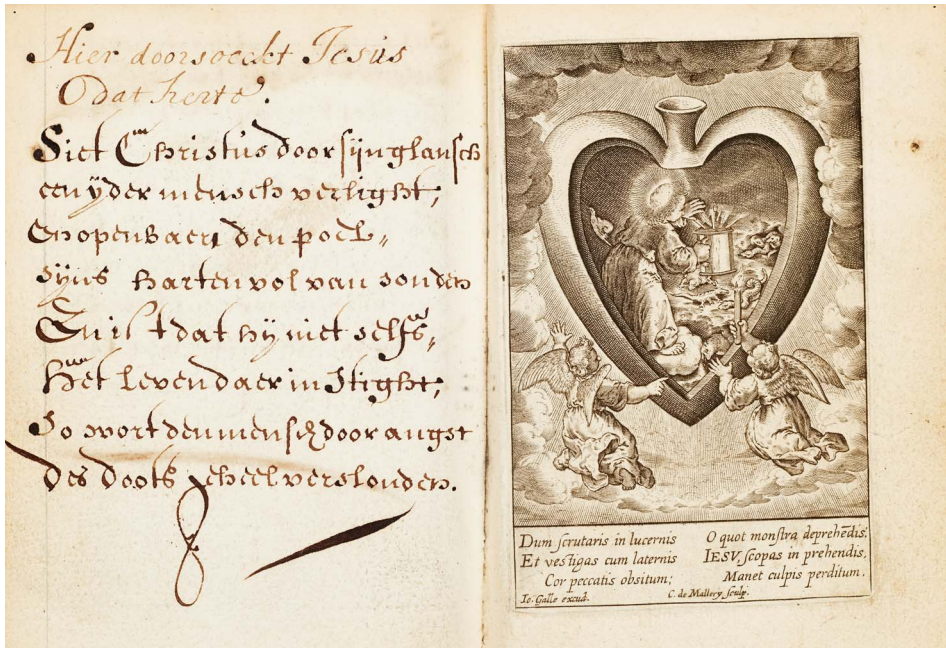 Hier doorsoeckt Jesus
O dat herte.
Siet Christus door sijn glansch
een yder mensch verlight,
En openbaert den poel,,
syns harten vol van sonden
En is 't dat hij niet selfs,,
Het leven daer in stight,
So wort den mensch door angst
des doots geheel verslonden.
Dum scrutaris in lucernis
Et vestigas cum laternis
Cor peccatis obsitum;
O quot monstra deprehēdis.
IESV, scopas in prehendis,
Manet culpis perditum.
Io. Galle excud.
C. de Mallery sculp.